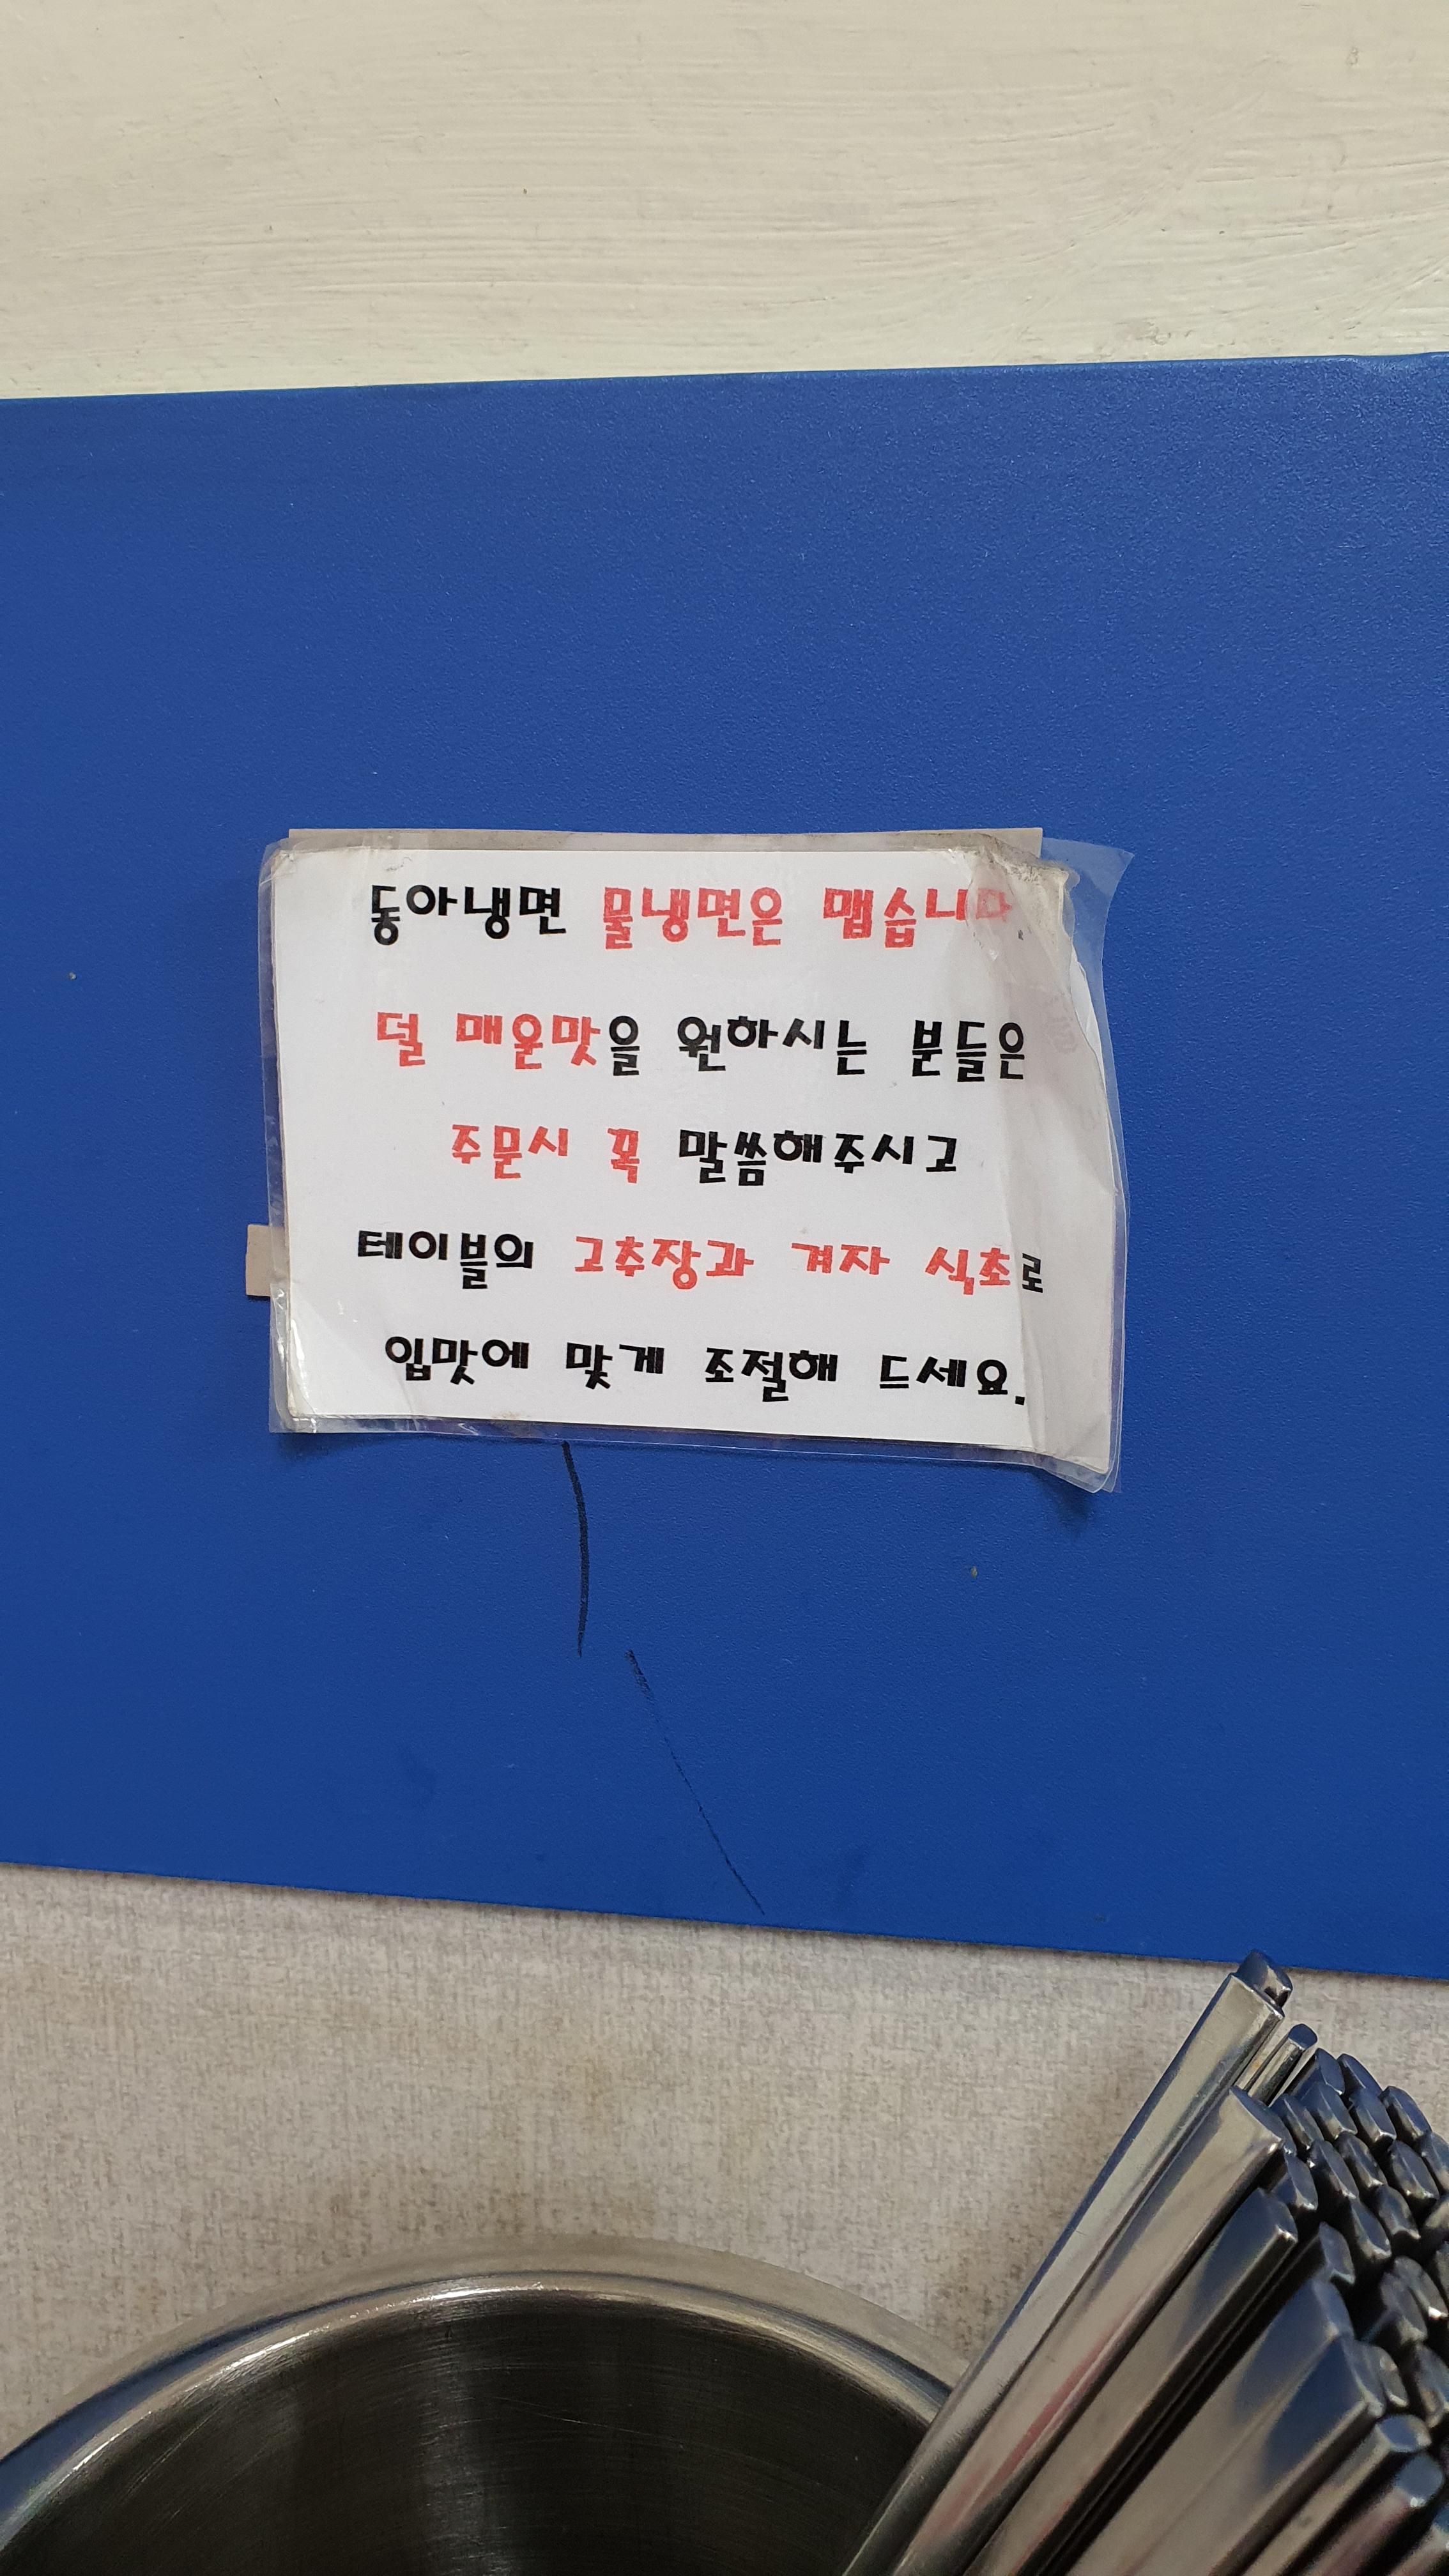 동아냉면 물냉면은 맵습니다.
덜 매운맛을 원하시는 분들은
주문시 꼭 말씀해주시고
테이블의 고추장과 겨자 식초로
입맛에 맞게 조절해 드세요.